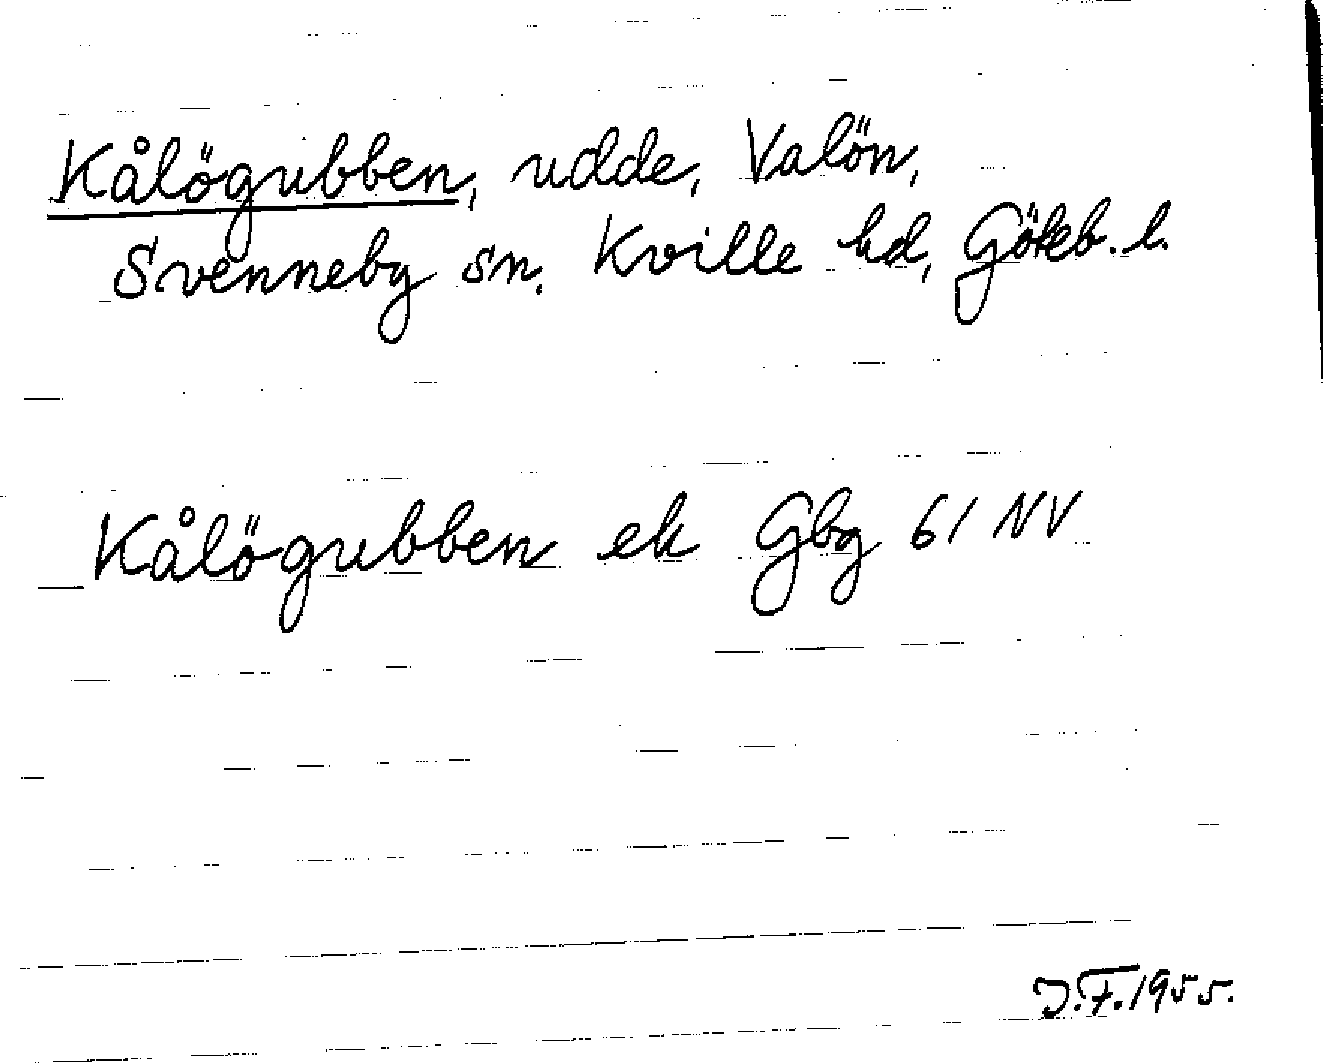 Kålögubben, udde, Valön,
Svenneby sn. Kville hd, Göteb. l.
Kålögubben ek Gbg 61 NV
J.F. 1955.